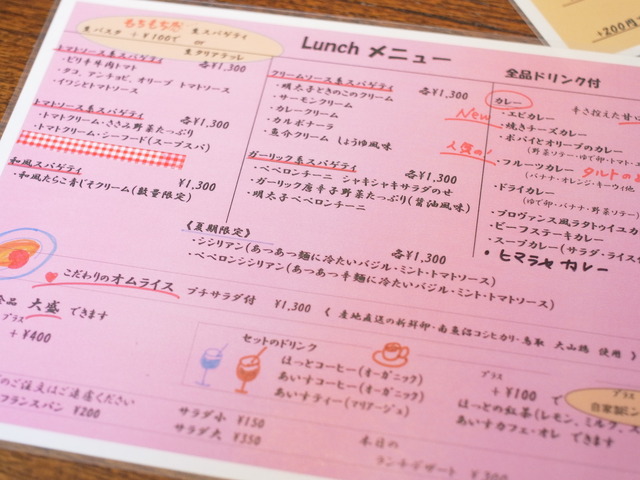 もちもち感
生パスタ +¥100で 生スパゲティ or 生タリアテッレ
Lunch メニュー
全品ドリンク付
+200円
トマトソース系スパゲティ 各¥1,300
・ピリ辛牛肉トマト
・タコ、アンチョビ、オリーブ トマトソース
・イワシとトマトソース
トマトクリームソース系スパゲティ 各¥1,300
・トマトクリーム・ささみ野菜たっぷり
・トマトクリーム・シーフード(スープスパ)
和風スパゲティ ¥1,300
・和風たらこ青じそクリーム(数量限定)
クリームソース系スパゲティ 各¥1,300
・明太子ときのこのクリーム
・サーモンクリーム
・カレークリーム
・カルボナーラ
・魚介クリーム しょうゆ風味
ガーリック系スパゲティ 各¥1,300
・ペペロンチーニ シャキシャキサラダのせ
・ガーリック唐辛子野菜たっぷり(醤油風味)
・明太子ペペロンチーニ
カレー 辛さ控えた甘い
・エビカレー
New
・焼きチーズカレー
・ポパイとオリーブのカレー
(野菜ソテー・ゆで卵・トマト
人気の!
・フルーツカレー タルトの
(バナナ・オレンジ・キーウィ他
・ドライカレー
(ゆで卵・バナナ・野菜ソテー)
・プロヴァンス風ラタトゥイユカ
・ビーフステーキカレー
・スープカレー(サラダ・ライス付
・ヒマラヤカレー
《夏期限定》 各¥1,300
・シシリアン(あつあつ麺に冷たいバジル・ミント・トマトソース)
・ペペロンシシリアン(あつあつ辛麺に冷たいバジル・ミント・トマトソース)
こだわりのオムライス プチサラダ付 ¥1,300 《産地直送の新鮮卵・南魚沼コシヒカリ・鳥取 大山鶏 使用》
全品 大盛 できます
プラス
+¥400
セットのドリンク
ほっとコーヒー(オーガニック)
あいすコーヒー(オーガニック)
あいすティー(マリアージュ)
プラス
+¥100 で
ほっとの紅茶(レモン、ミルク、ス
あいすカフェ・オレ できます
プラス
自家製
のご注文はご遠慮ください
フランスパン ¥200
サラダ小 ¥150
サラダ大 ¥350
本日の
ランチデザート ¥300